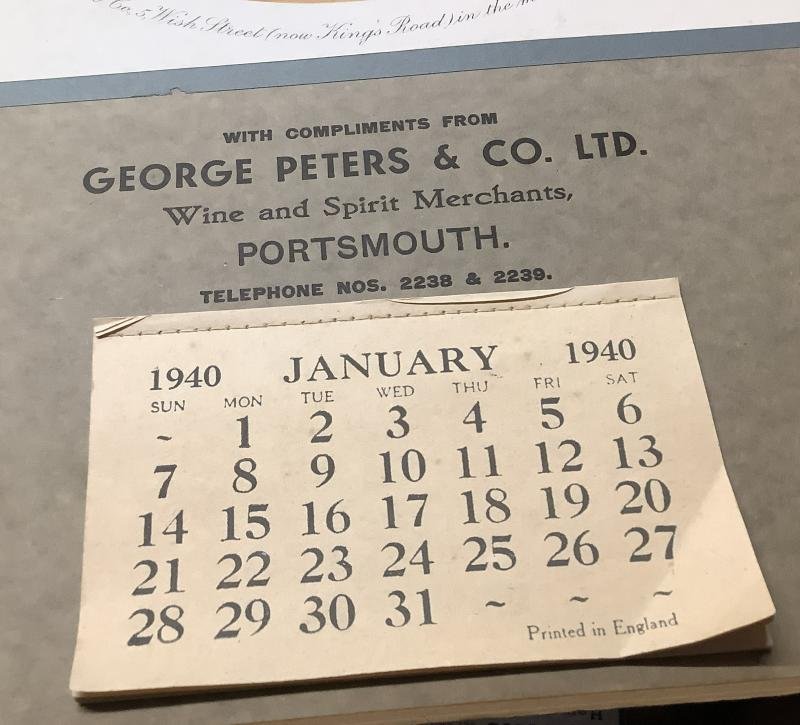 Co. 5, Wish Street (now King's Road) in the
WITH COMPLIMENTS FROM
GEORGE PETERS & CO. LTD.
Wine and Spirit Merchants,
PORTSMOUTH.
TELEPHONE NOS. 2238 & 2239.
1940 JANUARY 1940
SUN MON TUE WED THU FRI SAT
~ 1 2 3 4 5 6
7 8 9 10 11 12 13
14 15 16 17 18 19 20
21 22 23 24 25 26 27
28 29 30 31 ~ ~ ~
Printed in England